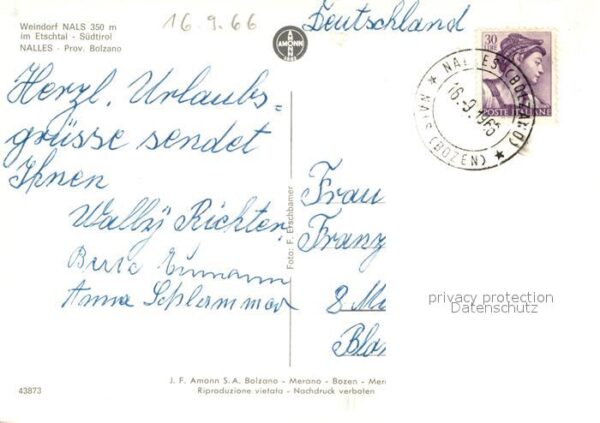 Weindorf NALS 350 m
im Etschtal - Südtirol
NALLES - Prov. Bolzano
16.9.66
AMONN
Deutschland
30
LIRE
POSTE ITALIANE
* NALLES (BOLZANO) *
NALS (BOZEN)
16.-9.1966
Herzl. Urlaubs-
grüsse sendet
Ihnen
Wally Richter
Anna Schlammer
Foto: F. Erschbamer
Frau
Franz
8 Mü
Blo
privacy protection
Datenschutz
43873
J. F. Amonn S.A. Bolzano - Merano - Bozen - Mer
Riproduzione vietata - Nachdruck verboten